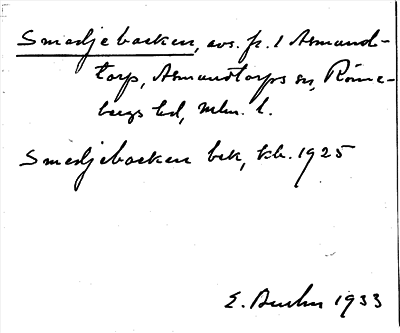 Smedjebacken, avs. fr. 1 Asmund-
torp, Asmundtorps sn, Röne-
bergs hd, Mlm. l.
Smedjebacken bek, kb. 1925
E. 1933